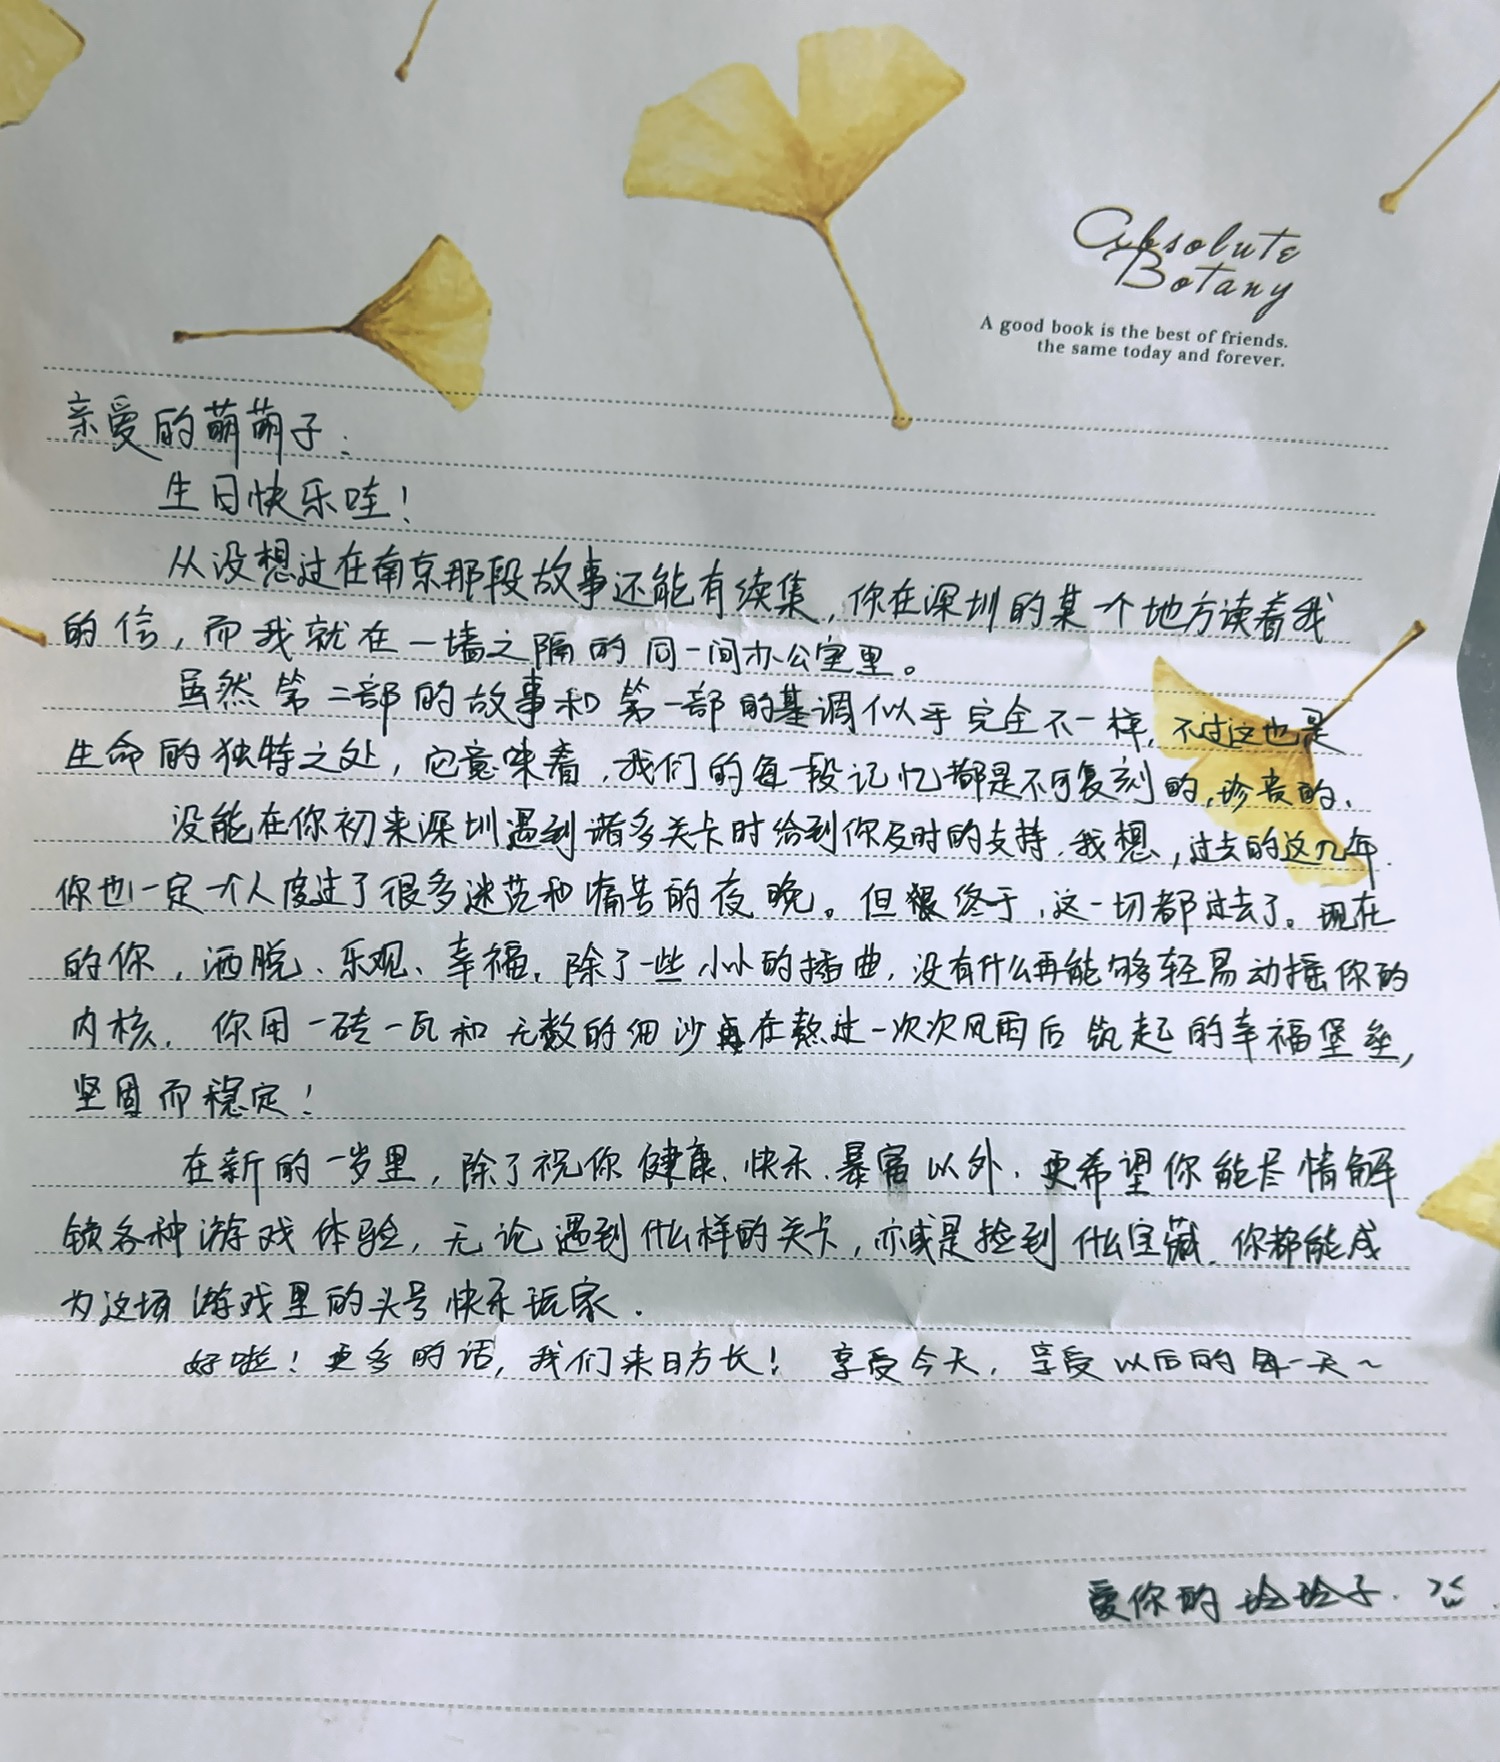 Absolute
Botany
A good book is the best of friends.
the same today and forever.
亲爱的萌萌子:
生日快乐哇!
从没想过在南京那段故事还能有续集,你在深圳的某一个地方读着我
的信,而我就在一墙之隔的同一间办公室里。
虽然第二部的故事和第一部的基调似乎完全不一样,不过这也是
生命的独特之处,它意味着,我们的每一段记忆都是不可复刻的,珍贵的、
没能在你初来深圳遇到诸多关卡时给到你及时的支持,我想,过去的这几年.
你也一定一个人度过了很多迷茫和痛苦的夜晚。但终于,这一切都过去了。现在
的你,洒脱、乐观、幸福,除了一些小小的插曲,没有什么再能够轻易动摇你的
内核.你用一砖一瓦和无数的细沙在熬过一次次风雨后筑起的幸福堡垒,
坚固而稳定!
在新的一岁里,除了祝你健康、快乐、暴富以外,更希望你能尽情解
锁各种游戏体验,无论遇到什么样的关卡,亦或是捡到什么宝藏,你都能成
为这场游戏里的头号快乐玩家.
好啦!更多的话,我们来日方长!享受今天,享受以后的每一天~
爱你的玲玲子.